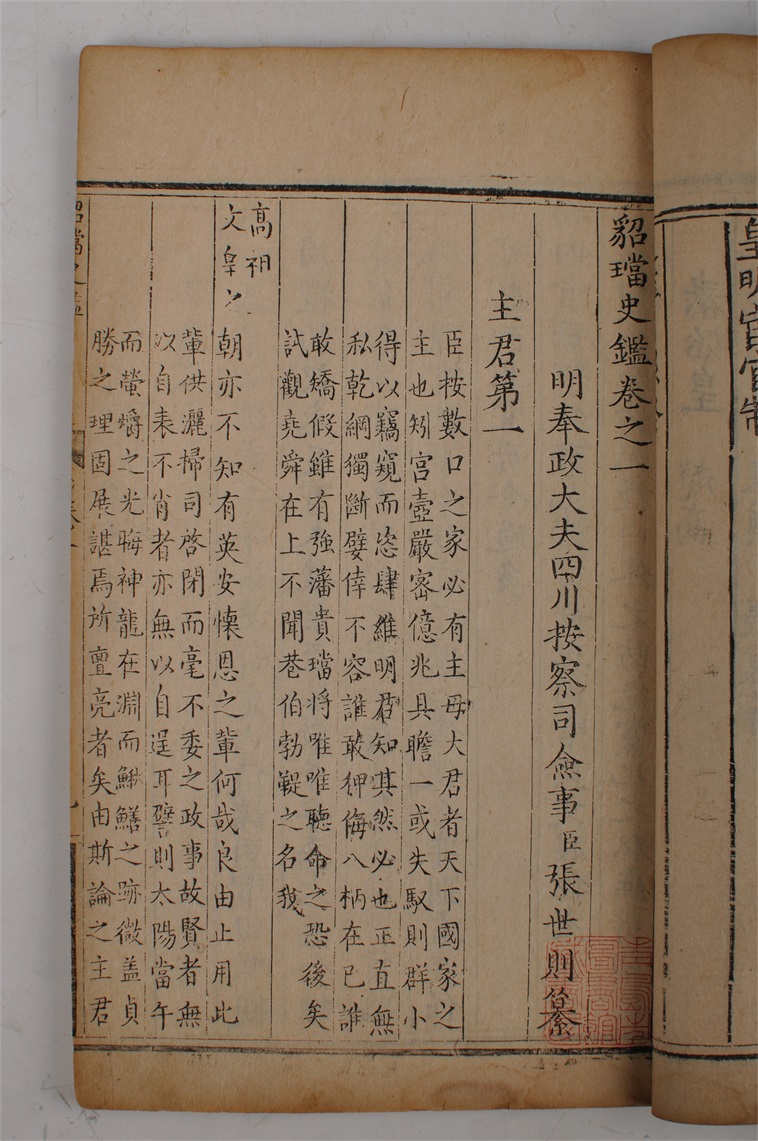 皇明宦官制
貂璫史鑑卷之一
明奉政大夫四川按察司僉事臣張世則纂
主君第一
臣按數口之家必有主毋大君者天下國家之
主也矧宮壼嚴密億兆具瞻一或失馭則群小
得以竊窺而恣肆維明君知其然必也正直無
私乾綱獨斷嬖倖不容誰敢狎侮八柄在已誰
敢矯假雖有強藩貴璫將唯唯聽命之恐後矣
試觀堯舜在上不聞巷伯勃鞮之名我
高祖
文皇之朝亦不知有英安懷恩之輩何哉良由止用此
輩供灑掃司啓閉而毫不委之政事故賢者無
以自表不肖者亦無以自逞耳譬則太陽當午
而螢爝之光晦神龍在淵而鰍鱔之跡微蓋貞
勝之理固展諶焉所亶亮者矣由斯論之主君